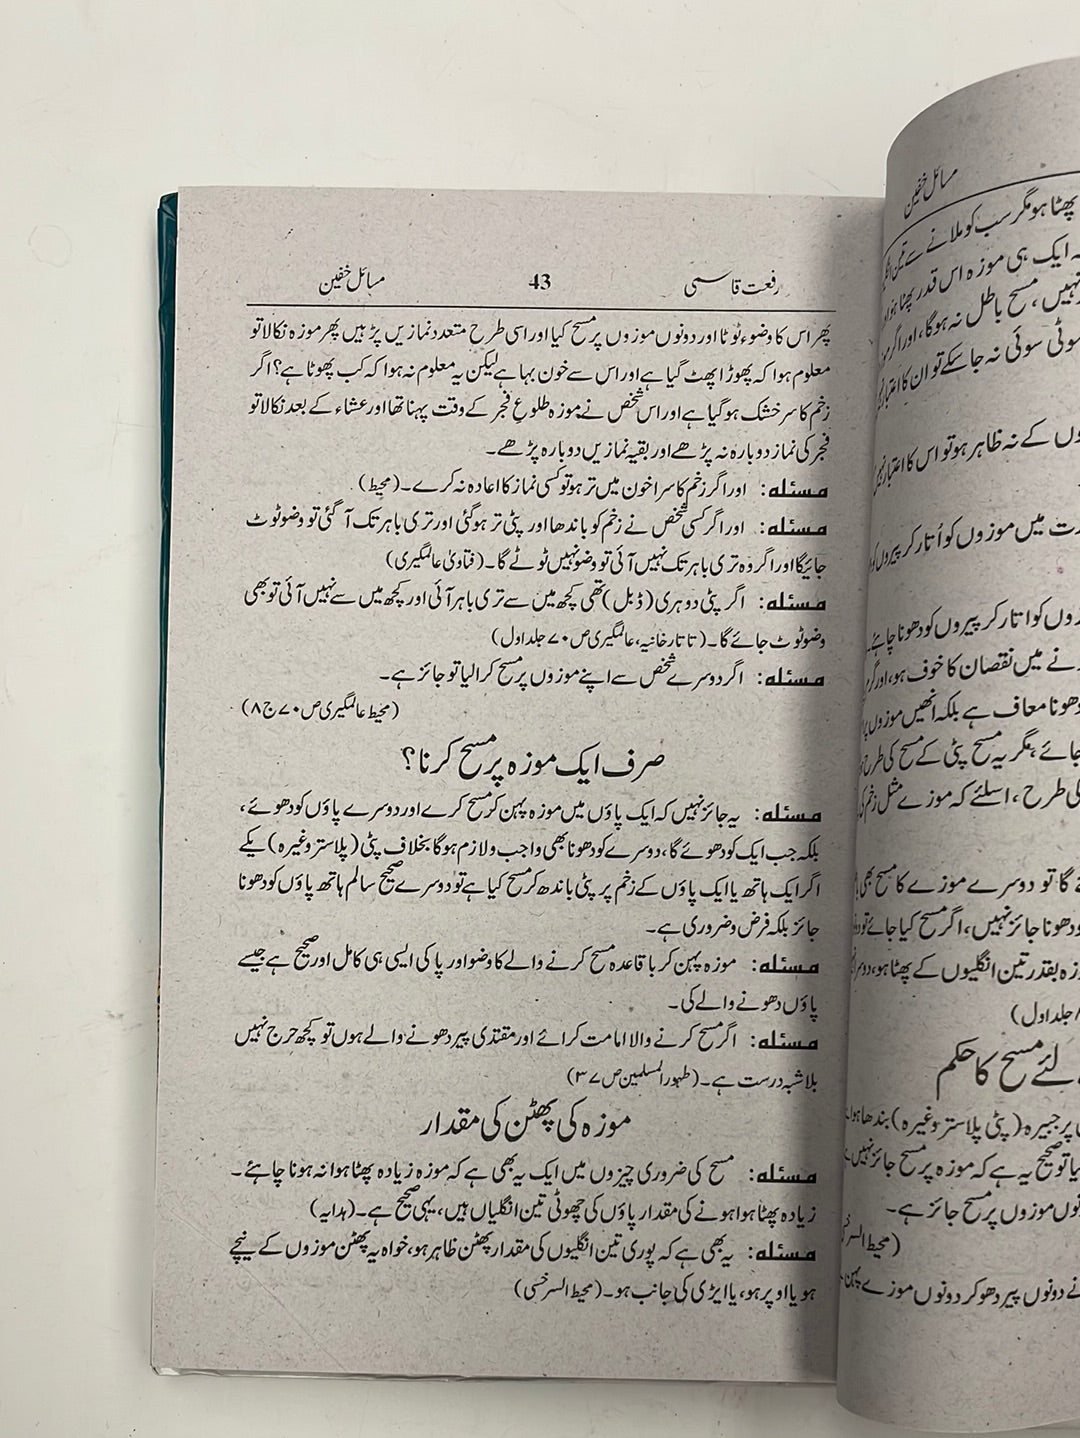 رفعت قاسمی 43 مسائل خفین
پھر اس کا وضوء ٹوٹا اور دونوں موزوں پر مسح کیا اور اسی طرح متعدد نمازیں پڑہیں پھر موزہ نکالا تو
معلوم ہوا کہ پھوڑا پھٹ گیا ہے اور اس سے خون بہا ہے لیکن یہ معلوم نہ ہوا کہ کب پھوٹا ہے؟ اگر
زخم کا سر خشک ہو گیا ہے اور اس شخص نے موزہ طلوع فجر کے وقت پہنا تھا اور عشاء کے بعد نکالا تو
فجر کی نماز دوبارہ نہ پڑھے اور بقیہ نمازیں دوبارہ پڑھے۔
مسئلہ: اور اگر زخم کا سرا خون میں تر ہو تو کسی نماز کا اعادہ نہ کرے۔ (محیط)
مسئلہ: اور اگر کسی شخص نے زخم کو باندھا اور پٹی تر ہو گئی اور تری باہر تک آ گئی تو وضو ٹوٹ
جائیگا اور اگر وہ تری باہر تک نہیں آئی تو وضو نہیں ٹوٹے گا۔ (فتاویٰ عالمگیری)
مسئلہ: اگر پٹی دوہری (ڈبل) تھی کچھ میں سے تری باہر آئی اور کچھ میں سے نہیں آئی تو بھی
وضو ٹوٹ جائے گا۔ (تاتارخانیہ، عالمگیری ص ۷۰ جلد اول)
مسئلہ: اگر دوسرے شخص سے اپنے موزوں پر مسح کرالیا تو جائز ہے۔
(محیط عالمگیری ص ۷۰ ج ۸)
صرف ایک موزہ پر مسح کرنا؟
مسئلہ: یہ جائز نہیں کہ ایک پاؤں میں موزہ پہن کر مسح کرے اور دوسرے پاؤں کو دھوئے،
بلکہ جب ایک کو دھوئے گا، دوسرے کو دھونا بھی واجب و لازم ہوگا بخلاف پٹی (پلاستر وغیرہ) یکے
اگر ایک ہاتھ یا ایک پاؤں کے زخم پر پٹی باندھ کر مسح کیا ہے تو دوسرے صحیح سالم ہاتھ پاؤں کو دھونا
جائز بلکہ فرض و ضروری ہے۔
مسئلہ: موزہ پہن کر باقاعدہ مسح کرنے والے کا وضو اور پاکی ایسی ہی کامل اور صحیح ہے جیسے
پاؤں دھونے والے کی۔
مسئلہ: اگر مسح کرنے والا امامت کرائے اور مقتدی پیر دھونے والے ہوں تو کچھ حرج نہیں
بلاشبہ درست ہے۔ (طہور المسلمین ص ۳۷)
موزہ کی پھٹن کی مقدار
مسئلہ: مسح کی ضروری چیزوں میں ایک یہ بھی ہے کہ موزہ زیادہ پھٹا ہوا نہ ہونا چاہئے۔
زیادہ پھٹا ہوا ہونے کی مقدار پاؤں کی چھوٹی تین انگلیاں ہیں، یہی صحیح ہے۔ (ہدایہ)
مسئلہ: یہ بھی ہے کہ پوری تین انگلیوں کی مقدار پھٹن ظاہر ہو، خواہ یہ پھٹن موزوں کے نیچے
ہو یا اوپر ہو، یا ایڑی کی جانب ہو۔ (محیط السرخسی)
مسائل خفین
پھٹا ہو مگر سب کو ملانے سے تین
ایک ہی موزہ اس قدر پھٹا ہوا
نہیں، مسح باطل نہ ہوگا، اور اگر
سوئی نہ جاسکے تو ان کا اعتبار
کے نہ ظاہر ہو تو اس کا اعتبار
میں موزوں کو اُتار کر پیروں
کو اتار کر پیروں کو دھونا چاہئے۔
نے میں نقصان کا خوف ہو، اور
دھونا معاف ہے بلکہ انھیں موزوں پر
جائے، مگر یہ مسح پٹی کے مسح کی طرح
کی طرح، اسلئے کہ موزے مثل زخم کی
گا تو دوسرے موزے کا مسح بھی
دھونا جائز نہیں، اگر مسح کیا جائے تو
بقدر تین انگلیوں کے پھٹا ہو، دوسرا
جلد اول)
لئے مسح کا حکم
پر جبیرہ (پٹی پلاستر وغیرہ) بندھا ہوا
تو صحیح یہ ہے کہ موزہ پر مسح جائز نہیں
موزوں پر مسح جائز ہے۔
(محیط
نے دونوں پیر دھو کر دونوں موزے پہن